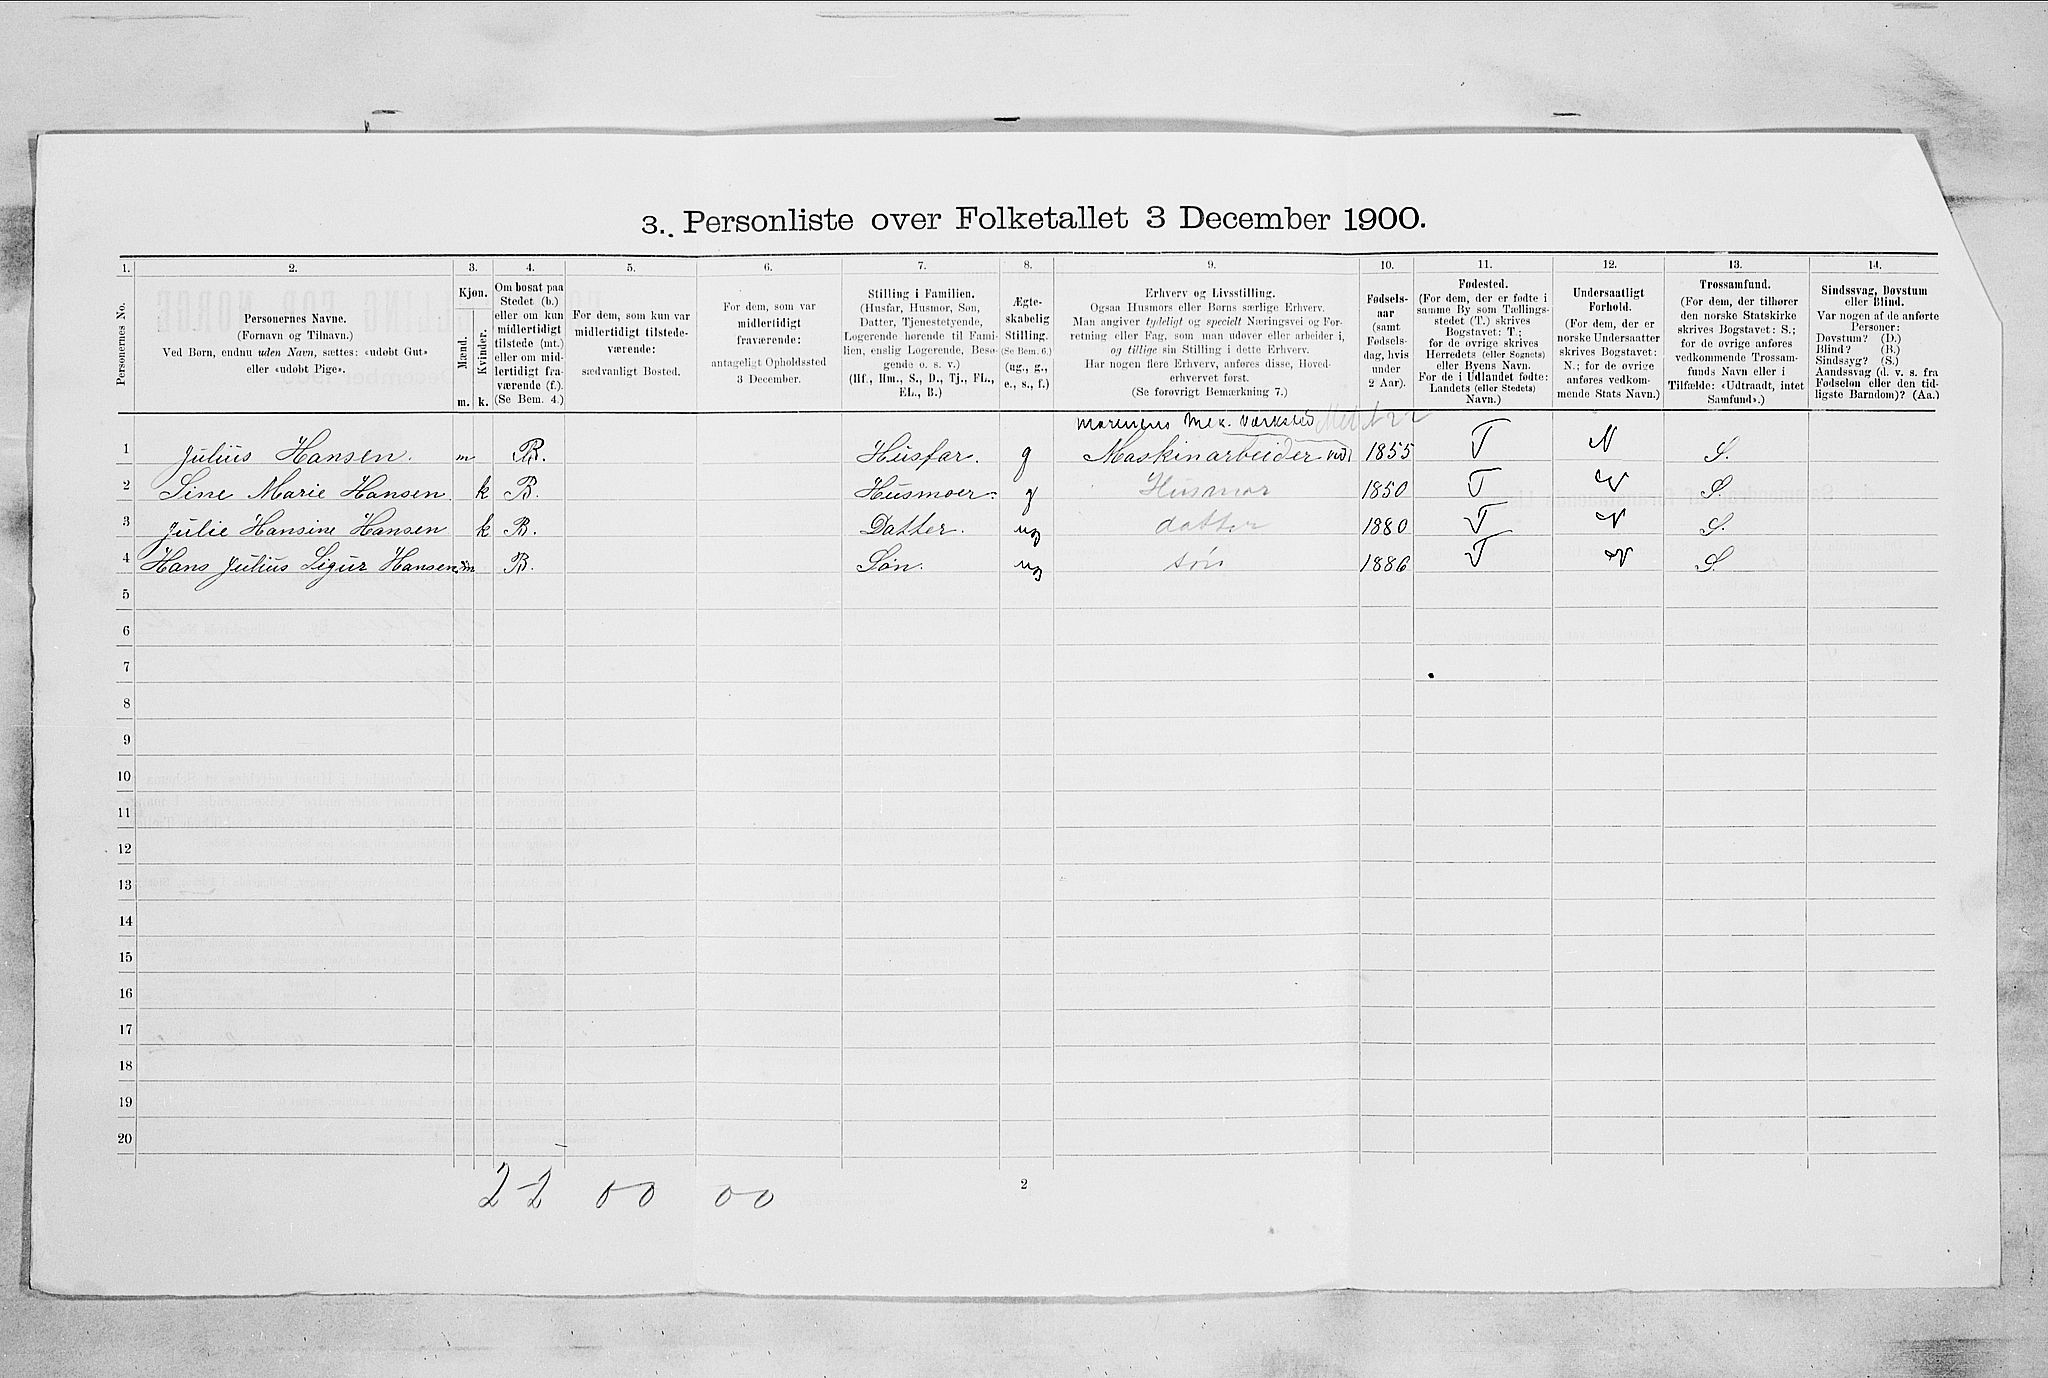 3. Personliste over Folketallet 3 December 1900.
1. 2. 3. 4. 5. 6. 7. 8. 9. 10. 11. 12. 13. 14.
Personernes No.
Personernes Navne.
(Fornavn og Tilnavn.)
Ved Børn, endnu uden Navn, sættes: «udøbt Gut»
eller «udøbt Pige».
Kjøn.
Mænd.
Kvinder.
m. k.
Om bosat paa
Stedet (b.)
eller om kun
midlertidigt
tilstede (mt.)
eller om mid-
lertidigt fra-
værende (f.).
(Se Bem. 4.)
For dem, som kun var
midlertidigt tilstede-
værende:
sædvanligt Bosted.
For dem, som var
midlertidigt
fraværende:
antageligt Opholdssted
3 December.
Stilling i Familien.
(Husfar, Husmor, Søn,
Datter, Tjenestetyende,
Logerende hørende til Fami-
lien, enslig Logerende, Besø-
gende o. s. v.)
(Hf., Hm., S., D., Tj., FL.,
EL., B.)
Ægte-
skabelig
Stilling.
(Se Bem. 6.)
(ug., g.,
e., s., f.)
Erhverv og Livsstilling.
Ogsaa Husmors eller Børns særlige Erhverv.
Man angiver tydeligt og specielt Næringsvei og For-
retning eller Fag, som man udøver eller arbeider i,
og tillige sin Stilling i dette Erhverv.
Har nogen flere Erhverv, anføres disse, Hoved-
erhvervet først.
(Se forøvrigt Bemærkning 7.)
Fødsels-
aar
(samt
Fødsels-
dag, hvis
under
2 Aar).
Fødested.
(For dem, der er fødte i
samme By som Tællings-
stedet (T.) skrives
Bogstavet: T;
for de øvrige skrives
Herredets (eller Sognets)
eller Byens Navn.
For de i Udlandet fødte:
Landets (eller Stedets)
Navn.)
Undersaatligt
Forhold.
(For dem, der er
norske Undersaatter
skrives Bogstavet:
N.; for de øvrige
anføres vedkom-
mende Stats Navn.)
Trossamfund.
(For dem, der tilhører
den norske Statskirke
skrives Bogstavet: S.;
for de øvrige anføres
vedkommende Trossam-
funds Navn eller i
Tilfælde: «Udtraadt, intet
Samfund».)
Sindssvag, Døvstum
eller Blind.
Var nogen af de anførte
Personer:
Døvstum? (D.)
Blind? (B.)
Sindssyg? (S.)
Aandssvag (d. v. s. fra
Fødselen eller den tid-
ligste Barndom)? (Aa.)
Mek. Værksted
1 Julius Hansen. m B. Husfar. g Maskinarbeider ved 1855 T N S.
2 Sine Marie Hansen k B. Husmoer. g Husmor 1850 T N S.
3 Julie Hansine Hansen k B. Datter. ug datter 1880 T N S.
4 Hans Julius Sigur Hansen. m B. Søn. ug søn 1886 T N S.
5
6
7
8
9
10
11
12
13
14
15
16
17
18
19
20
2-2 00 00
2